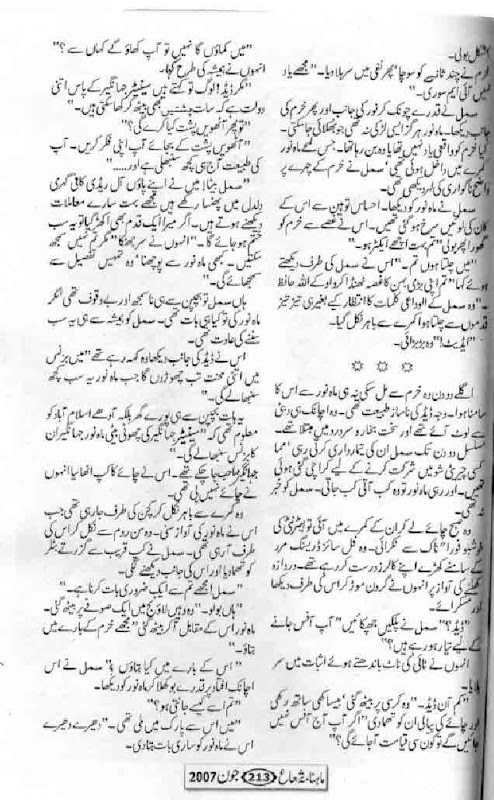 مشکل بولی۔
خرم نے چند ثانیے کو سوچا، پھر نفی میں سر ہلا دیا۔ "مجھے یاد
نہیں آئی ایم سوری۔"
سمل نے قدرے چونک کر نور کی جانب اور پھر خرم کی
جانب دیکھا۔ ماہ نور ہرگز ایسی لڑکی نہ تھی جو بھلائی جا سکتی۔
کیا خرم کو واقعی یاد نہیں تھا یا وہ بن رہا تھا۔ جس لمحے ماہ نور
کمرے میں داخل ہوئی تھی، سمل نے خرم کے چہرے پر
واضح ناگواری کی لہر دیکھی تھی۔
سمل نے ماہ نور کو دیکھا۔ احساس توہین سے اس کے
کان کی لوئیں سرخ ہو گئی تھیں۔ اس نے غصے سے خرم کو
گھورا پھر بولی "تم بہت اچھے ایکٹر ہو۔"
"میں چلتا ہوں تم۔" اس نے سمل کی طرف دیکھتے
ہوئے کہا "تم اپنی بڑی بہن کا غصہ ٹھنڈا کرو اوکے اللہ حافظ
۔" وہ سمل کے الوداعی کلمات کا انتظار کیے بغیر ہی تیز تیز
قدموں سے چلتا ہوا کمرے سے باہر نکل گیا۔
"ایڈیٹ!" وہ بڑبڑائی۔
☼ ☼ ☼
اگلے دو دن وہ خرم سے مل سکی نہ ہی ماہ نور سے اس کا
سامنا ہوا۔ وجہ ڈیڈ کی ناساز طبیعت تھی۔ وہ اچانک ہی دبئی
سے لوٹ آئے تھے اور سخت بخار و سر درد میں مبتلا تھے۔
مسلسل دو دن تک سمل ان کی تیمارداری کرتی رہی، مما
کسی چیریٹی شو میں شرکت کرنے کے لیے کراچی گئی ہوئی
تھیں۔ اور رہی ماہ نور تو وہ کب آئی کب جاتی۔ سمل کو خبر
نہ تھی۔
وہ صبح چائے لے کر ان کے کمرے میں آئی تو ایٹرنٹی کی
خوشبو فوراً ناک سے ٹکرائی۔ وہ فل سائز ڈریسنگ مرر
کے سامنے کھڑے اپنے کالر درست کر رہے تھے۔ دروازہ
کھلنے کی آواز پر انہوں نے گردن موڑ کر اس کی طرف دیکھا
اور مسکرائے۔
"ڈیڈ؟" سمل نے پلکیں جھپکائیں "آپ آفس جانے
کے لیے تیار ہو رہے ہیں؟"
انہوں نے ٹائی کی ناٹ باندھتے ہوئے اثبات میں سر
ہلا دیا۔
"کم آن ڈیڈ۔" وہ کرسی پر بیٹھ گئی، بیساکھی ساتھ رکھی
اور چائے کی پیالی ان کو تھما دی "اگر آپ آج آفس نہیں
جائیں گے تو کون سی قیامت آ جائے گی؟"
"میں کماؤں گا نہیں تو آپ کھاؤ گے کہاں سے؟"
انہوں نے ہمیشہ کی طرح کہا۔
"مگر ڈیڈ! لوگ تو کہتے ہیں سینیٹر جہانگیر کے پاس اتنی
دولت ہے کہ سات پشتیں بھی بیٹھ کر کھا سکتی ہیں۔"
"تو پھر آٹھویں پشت کیا کرے گی؟"
"آٹھویں پشت کے بجائے آپ اپنی فکر کریں۔ آپ
کی طبیعت آج ہی کچھ سنبھلی ہے اور....."
"سمل بیٹا! میں نے اپنے پاؤں آل ریڈی کافی گہری
دلدل میں پھنسا رکھے ہیں مجھے بہت سارے معاملات
دیکھنے ہوتے ہیں۔ اگر میرا ایک قدم بھی اکھڑ گیا تو یہ سب
ختم ہو جائے گا۔" انہوں نے سر جھٹکا "مگر تم نہیں سمجھ
سکتیں۔ کبھی ماہ نور سے پوچھنا، وہ تمہیں تفصیل سے
سمجھائے گی۔"
ہاں سمل تو بچپن سے ہی ناسمجھ اور بے وقوف تھی، مگر
ماہ نور کی تو کیا ہی بات تھی۔ سمل کو ہمیشہ سے ہی یہ سب
سننے کی عادت تھی۔
اس نے ڈیڈ کی جانب دیکھا وہ کہہ رہے تھے "میں بزنس
میں اتنی محنت تب چھوڑوں گا جب ماہ نور یہ سب کچھ
سنبھالے گی۔"
یہ بات بچپن سے ہی پورے گھر بلکہ آدھے اسلام آباد کو
معلوم تھی کہ "سینیٹر جہانگیر کی چھوٹی بیٹی ماہ نور جہانگیر ان
کا بزنس سنبھالے گی۔"
جہانگیر صاحب جا چکے تھے۔ اس نے چائے کا کپ اٹھایا انہوں
نے چائے نہیں پی تھی۔
وہ کمرے سے باہر نکل کر کچن کی طرف جا رہی تھی جب
اس نے ماہ نور کی آواز سنی۔ وہ من روم سے نکل کر اس کی
طرف آ رہی تھی۔ سمل نے کپ قریب سے گزرتے بٹلر
کو تھما دیا اور اس کی جانب دیکھنے لگی۔
"سمل! مجھے تم سے ایک ضروری بات کرنا ہے۔"
"ہاں بولو۔" وہ وہیں لاؤنج میں ایک صوفے پر بیٹھ گئی۔
ماہ نور اس کے مقابل آ کر بیٹھ گئی "مجھے خرم کے بارے میں
بتاؤ۔"
"اس کے بارے میں کیا بتاؤں؟" سمل نے اس
اچانک افتاد پر قدرے بوکھلا کر ماہ نور کو دیکھا۔
"تم اسے کیسے جانتی ہو؟"
"میں اس سے پارک میں ملی تھی۔" دھیرے دھیرے
اس نے ماہ نور کو ساری بات بتا دی۔
ماہنامہ شعاع 213 جون 2007